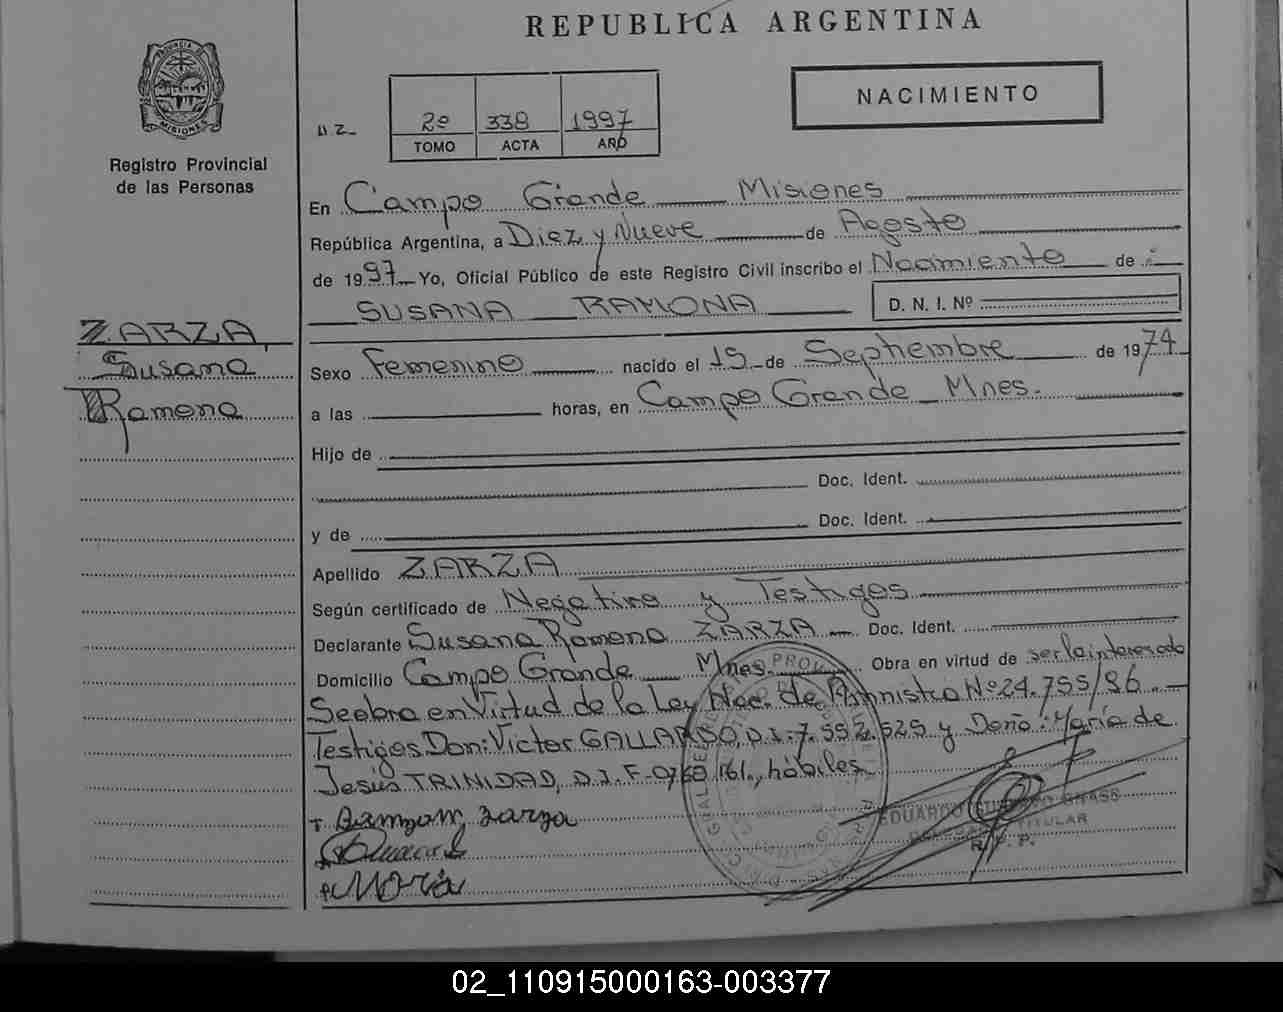 REPUBLICA ARGENTINA
PROVINCIA DE MISIONES
Registro Provincial
de las Personas
U.Z.
2º 338 1997
TOMO ACTA AÑO
NACIMIENTO
En Campo Grande Misiones
República Argentina, a Diez y Nueve de Agosto
de 1997 Yo, Oficial Público de este Registro Civil inscribo el Nacimiento de
SUSANA RAMONA D. N. I. Nº
ZARZA,
Susana
Ramona
Sexo Femenino nacido el 15 de Septiembre de 1974
a las horas, en Campo Grande Mnes.
Hijo de
Doc. Ident.
y de Doc. Ident.
Apellido ZARZA
Según certificado de Negativo y Testigos
Declarante Susana Ramona ZARZA Doc. Ident.
Domicilio Campo Grande Mnes. Obra en virtud de ser la interesada
Se obra en Virtud de la Ley Nac. de Amnistia Nº 24.755/96.
Testigos Don: Victor GALLARDO, D.I: 7.552.525 y Doña: María de
Jesús TRINIDAD, D.I. F- 0760 161., hábiles
zarza
EDUARDO GRASS
TITULAR
R. P. P.
02_110915000163-003377